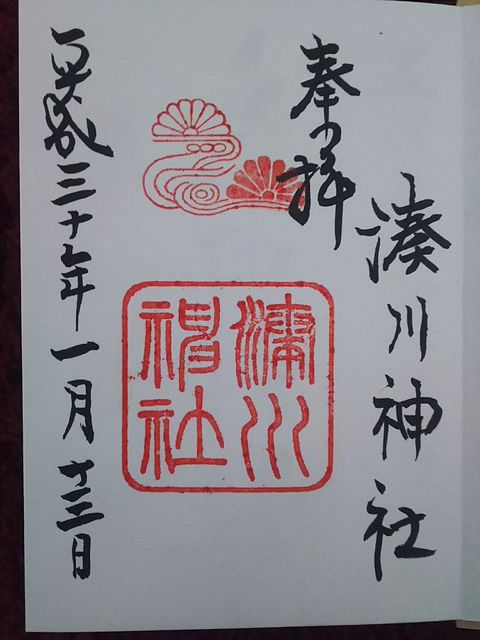 奉拝
湊川神社
湊川
神社
平成三十年一月十三日